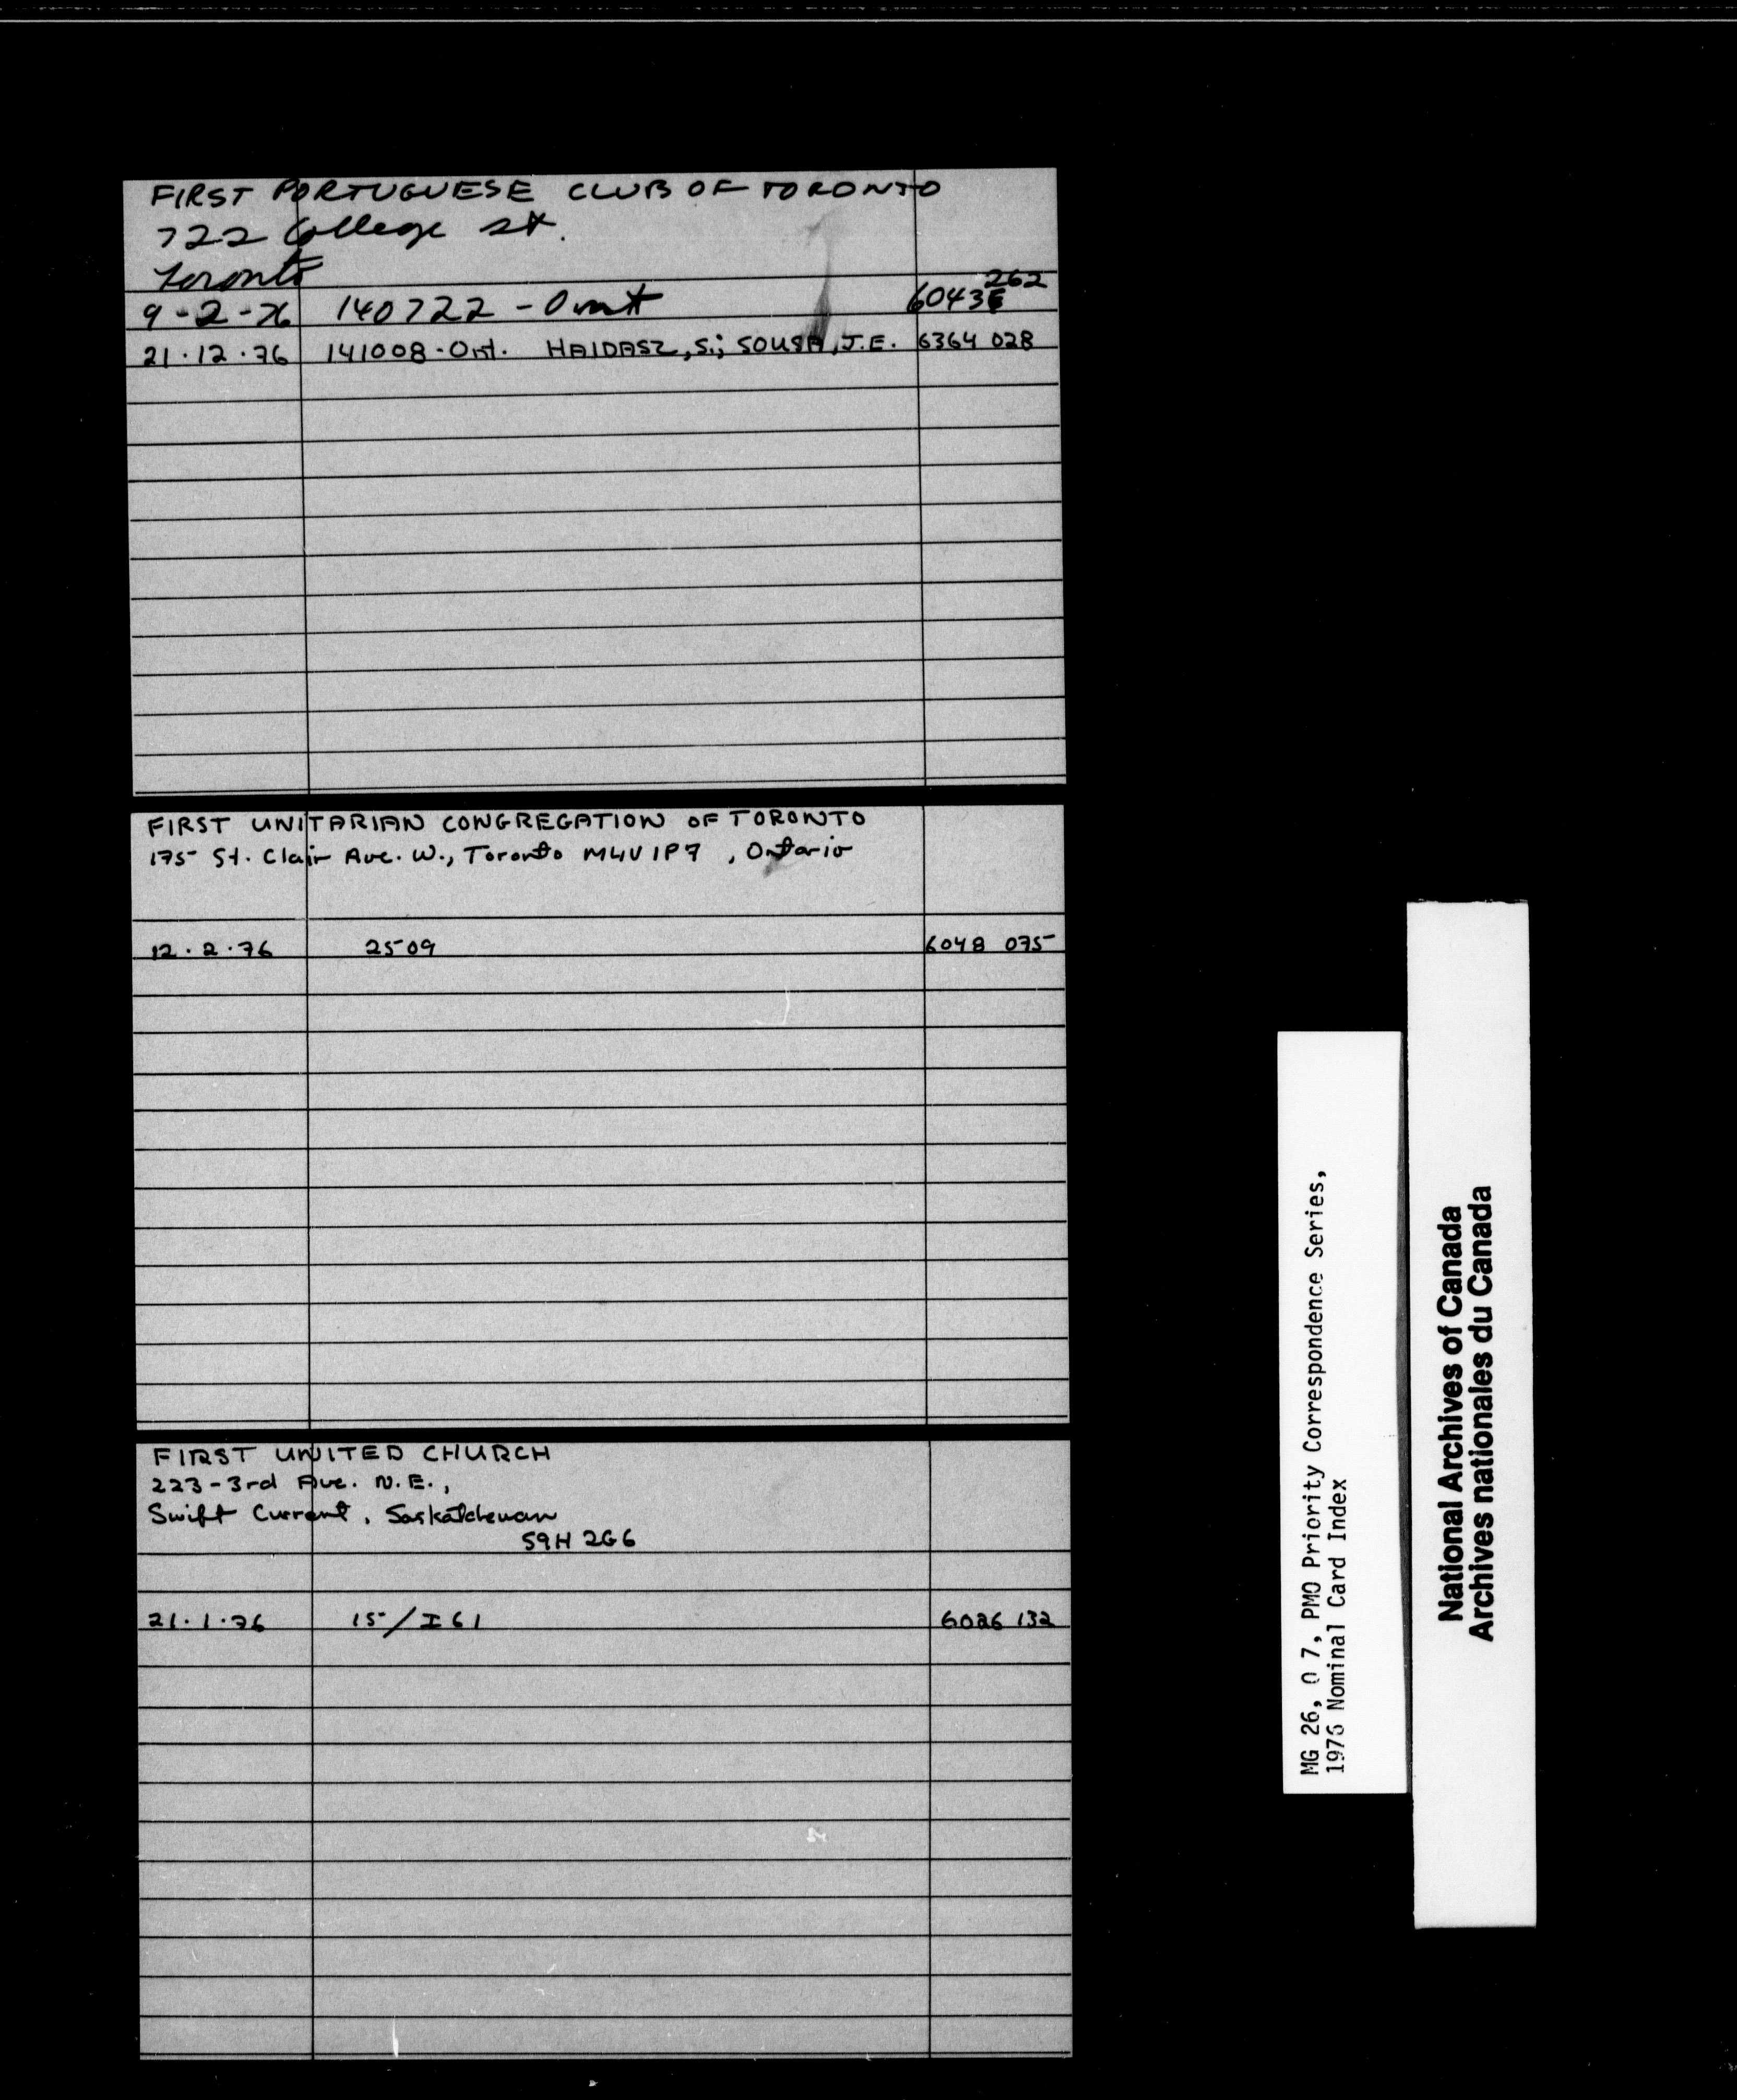 FIRST PORTUGUESE CLUB OF TORONTO
722 College St.
Toronto
9-2-76 140722 - Ont 6043 262
21.12.76 141008-Ont. HAIDASZ, S.; SOUSA, J.E. 6364 028
FIRST UNITARIAN CONGREGATION OF TORONTO
175 St. Clair Ave. W., Toronto M4V 1P7 , Ontario
12.2.76 2509 6048 075
FIRST UNITED CHURCH
223-3rd Ave. N.E.,
Swift Current, Saskatchewan
S9H 2G6
21.1.76 15/I61 6026 132
MG 26, O 7, PMO Priority Correspondence Series,
1976 Nominal Card Index
National Archives of Canada
Archives nationales du Canada